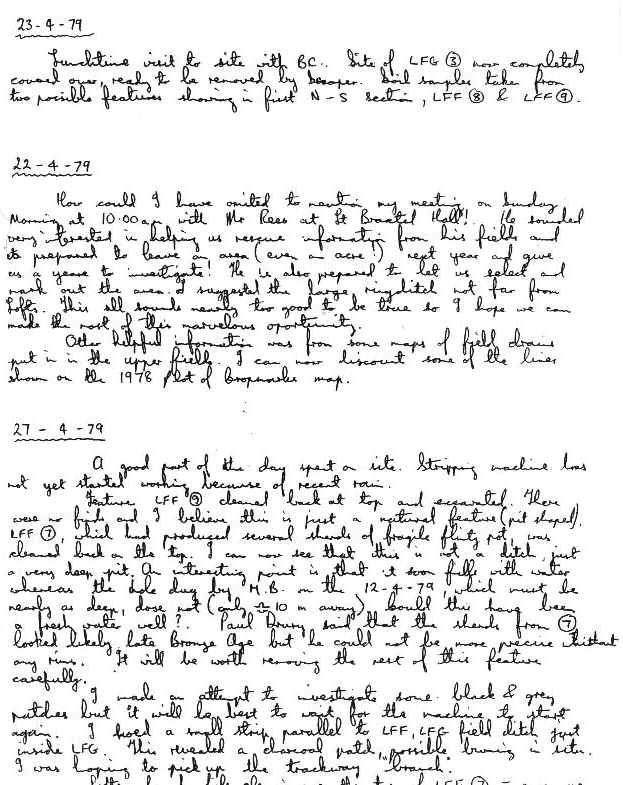 23-4-79
Lunchtime visit to site with BC. Site of LFG ③ now completely
covered over, ready to be removed by scraper. Soil samples taken from
two possible features showing in first N-S section, LFF ⑧ & LFF ⑨.
22-4-79
How could I have omited to mention my meeting on Sunday
Morning at 10.00am with Mr Rees at St Hall! He sounded
very interested in helping us rescue information from his fields and
is prepared to leave an area (even an acre!) next year and give
us a year to investigate! He is also prepared to let us select and
mark out the area. I suggested the large ringditch not far from
Lofts. This all sounds nearly too good to be true so I hope we can
make the most of this marvelous oportunity.
Other helpful information was from some maps of field drains
put in in the upper fields. I can now discount some of the lines
shown on the 1978 plot of Cropmarks map.
27-4-79
A good part of the day spent on site. Stripping machine has
not yet started working because of recent rain.
Feature LFF ⑨ cleaned back at top and excavated. There
were no finds and I believe this is just a natural feature (pit shaped).
LFF ⑦, which had produced several sherds of fragile flinty pot, was
cleaned back on the top. I can now see that this is not a ditch, just
a very deep pit. An interesting point is that it soon fills with water
whereas the hole dug by M.B. on the 12-4-79, which must be
nearly as deep, dose not (only ≏ 10 m away) Could this have been
a fresh water well?. Paul Drury said that the sherds from ⑦
looked likely late Bronze Age but he could not be more precise without
any rims. It will be worth removing the rest of this feature
carefully.
I made an attempt to investigate some black & grey
patches but it will be best to wait for the machine to start
again. I hoed a small strip parallel to LFF, LFG field ditch just
inside LFG. This revealed a charcoal patch, possible burning in situ.
I was hoping to pick up the trackway "branch".